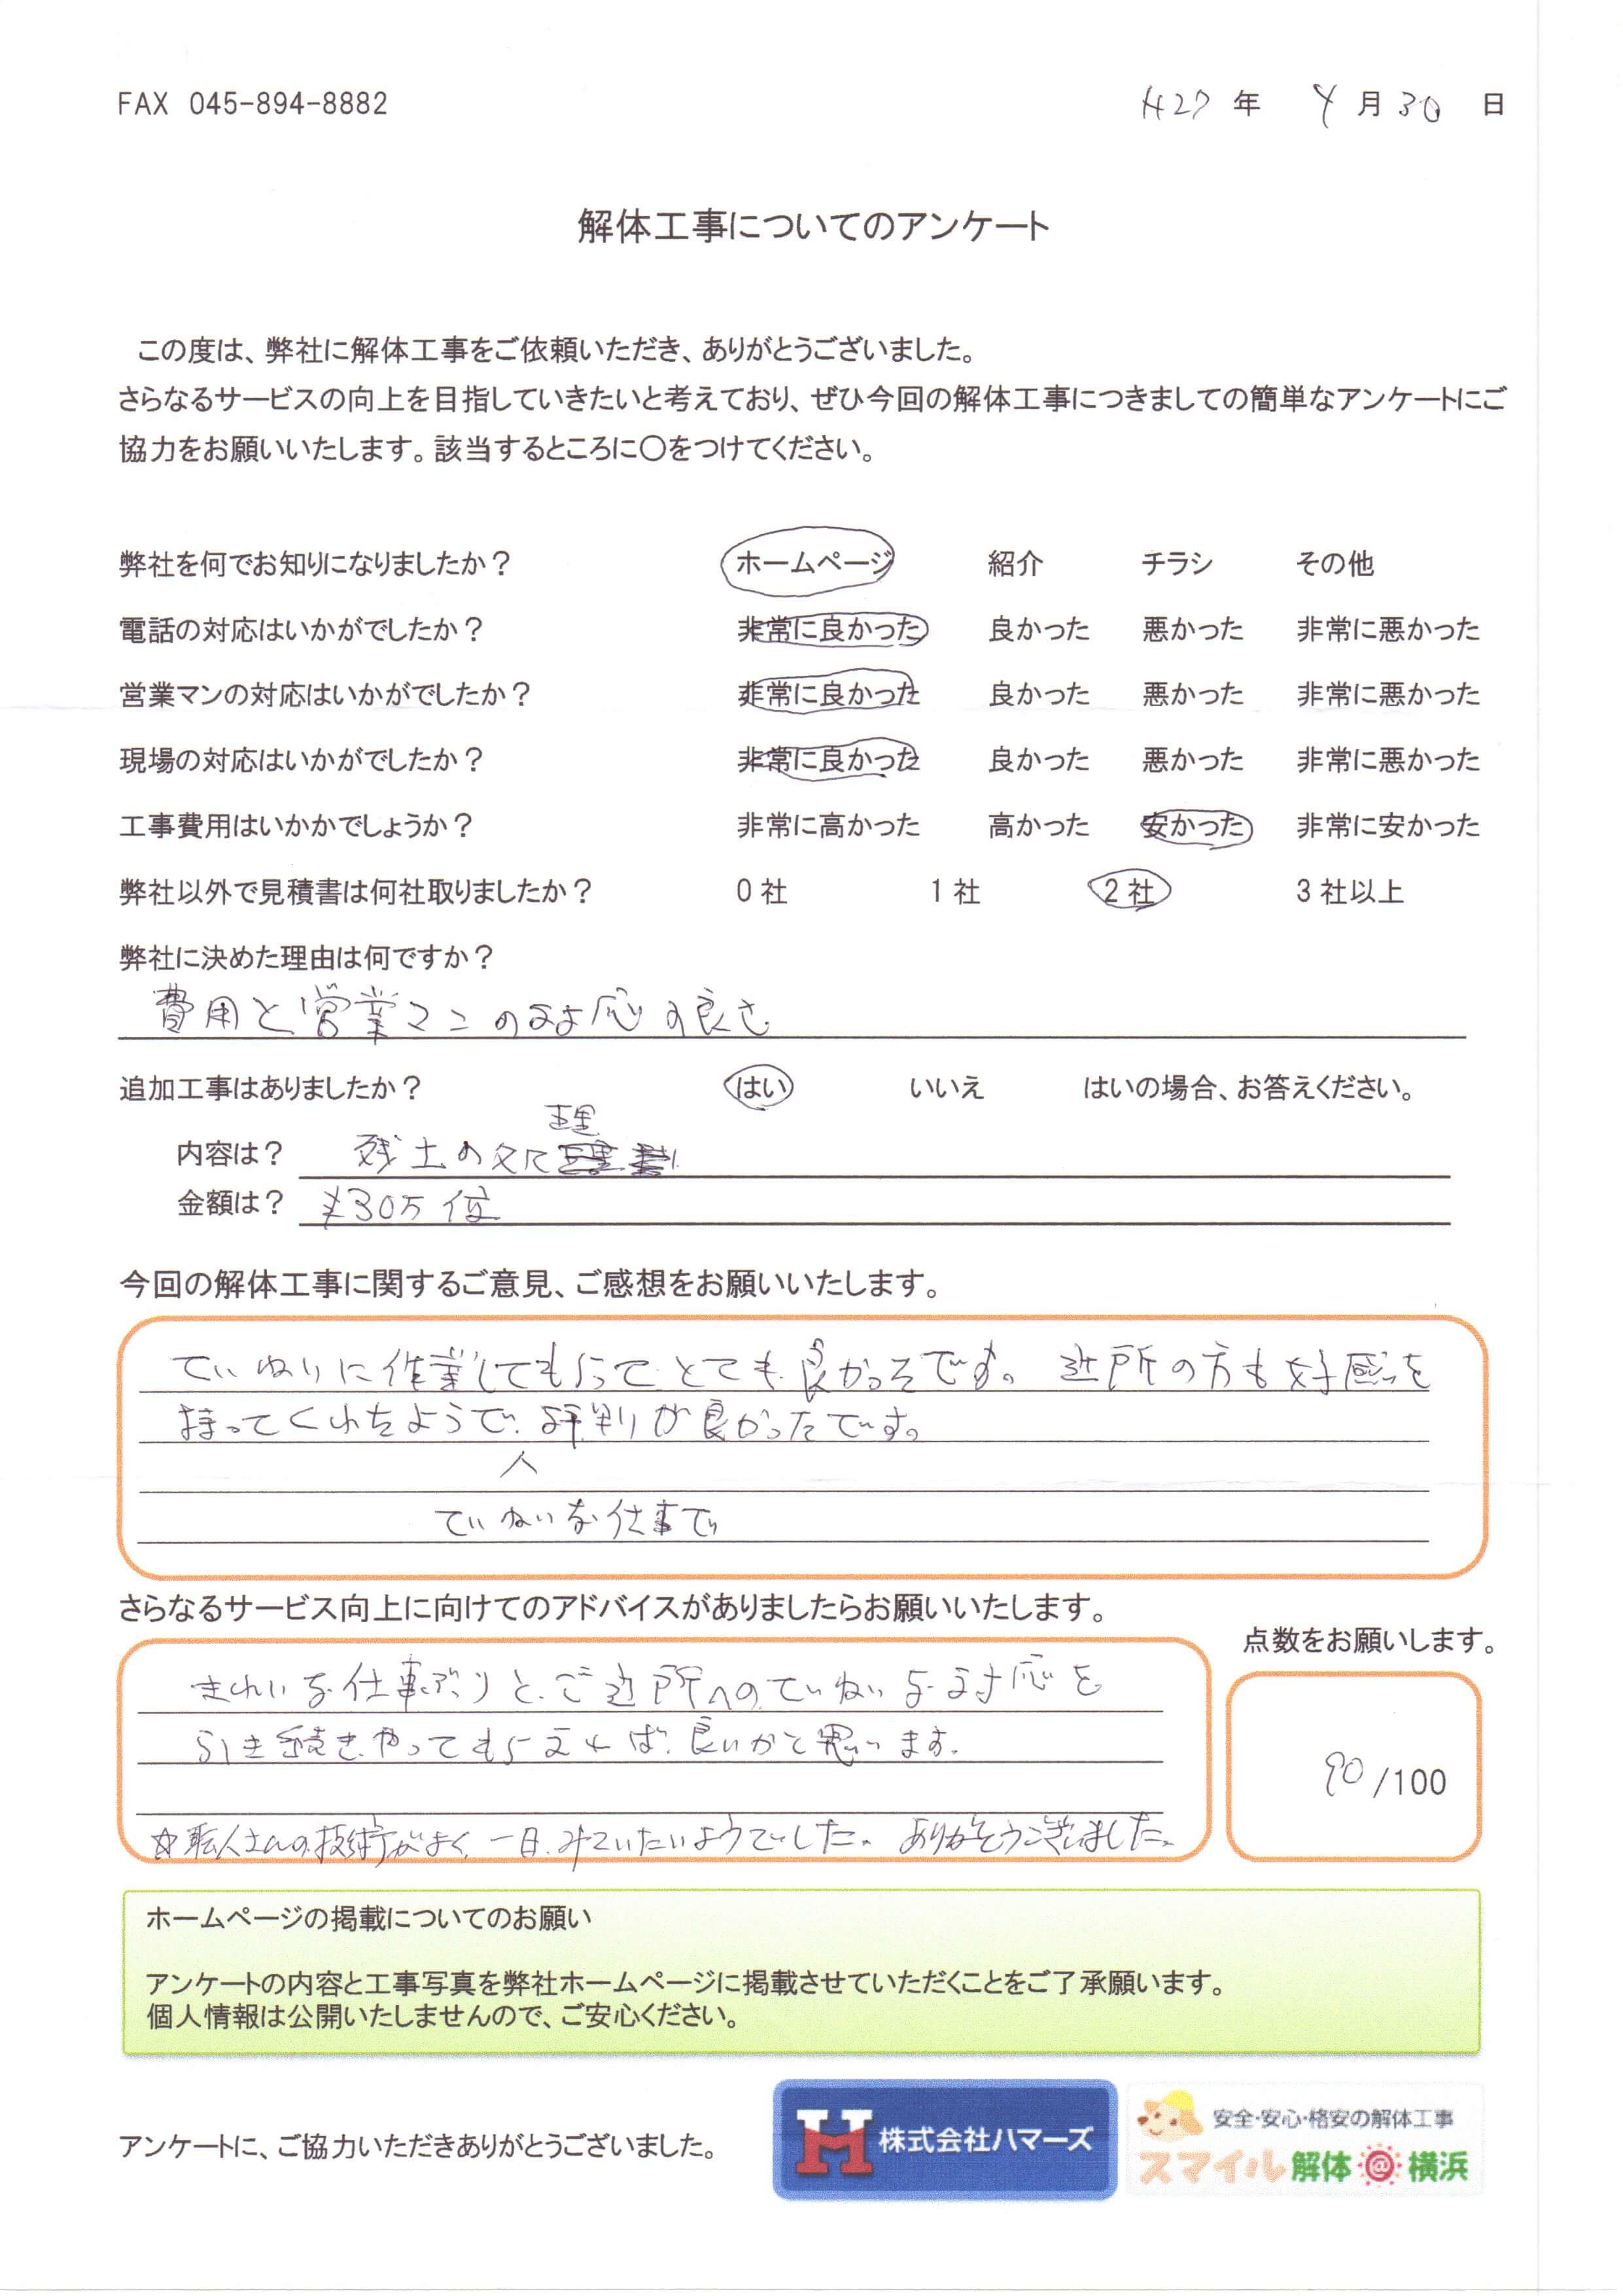 FAX 045-894-8882
H27年 4月30日
解体工事についてのアンケート
この度は、弊社に解体工事をご依頼いただき、ありがとうございました。
さらなるサービスの向上を目指していきたいと考えており、ぜひ今回の解体工事につきましての簡単なアンケートにご
協力をお願いいたします。該当するところに〇をつけてください。
弊社を何でお知りになりましたか？ ホームページ 紹介 チラシ その他
電話の対応はいかがでしたか？ 非常に良かった 良かった 悪かった 非常に悪かった
営業マンの対応はいかがでしたか？ 非常に良かった 良かった 悪かった 非常に悪かった
現場の対応はいかがでしたか？ 非常に良かった 良かった 悪かった 非常に悪かった
工事費用はいかかでしょうか？ 非常に高かった 高かった 安かった 非常に安かった
弊社以外で見積書は何社取りましたか？ 0社 1社 2社 3社以上
弊社に決めた理由は何ですか？
費用と営業マンの対応の良さ
追加工事はありましたか？ はい いいえ はいの場合、お答えください。
理
内容は？ 残土の処
金額は？ ¥30万位
今回の解体工事に関するご意見、ご感想をお願いいたします。
ていねいに作業してもらってとても良かったです。近所の方も好感を
持ってくれたようで、評判が良かったです。
ていねいな仕事で
さらなるサービス向上に向けてのアドバイスがありましたらお願いいたします。
点数をお願いします。
きれいな仕事ぶりと、ご近所へのていねいな対応を
引き続き、やってもらえれば、良いかと思います。
90/100
☆職人さんの技術がよく、一日、みていたいようでした。ありがとうございました。
ホームページの掲載についてのお願い
アンケートの内容と工事写真を弊社ホームページに掲載させていただくことをご了承願います。
個人情報は公開いたしませんので、ご安心ください。
アンケートに、ご協力いただきありがとうございました。
H 株式会社ハマーズ
安全・安心・格安の解体工事
スマイル解体@横浜